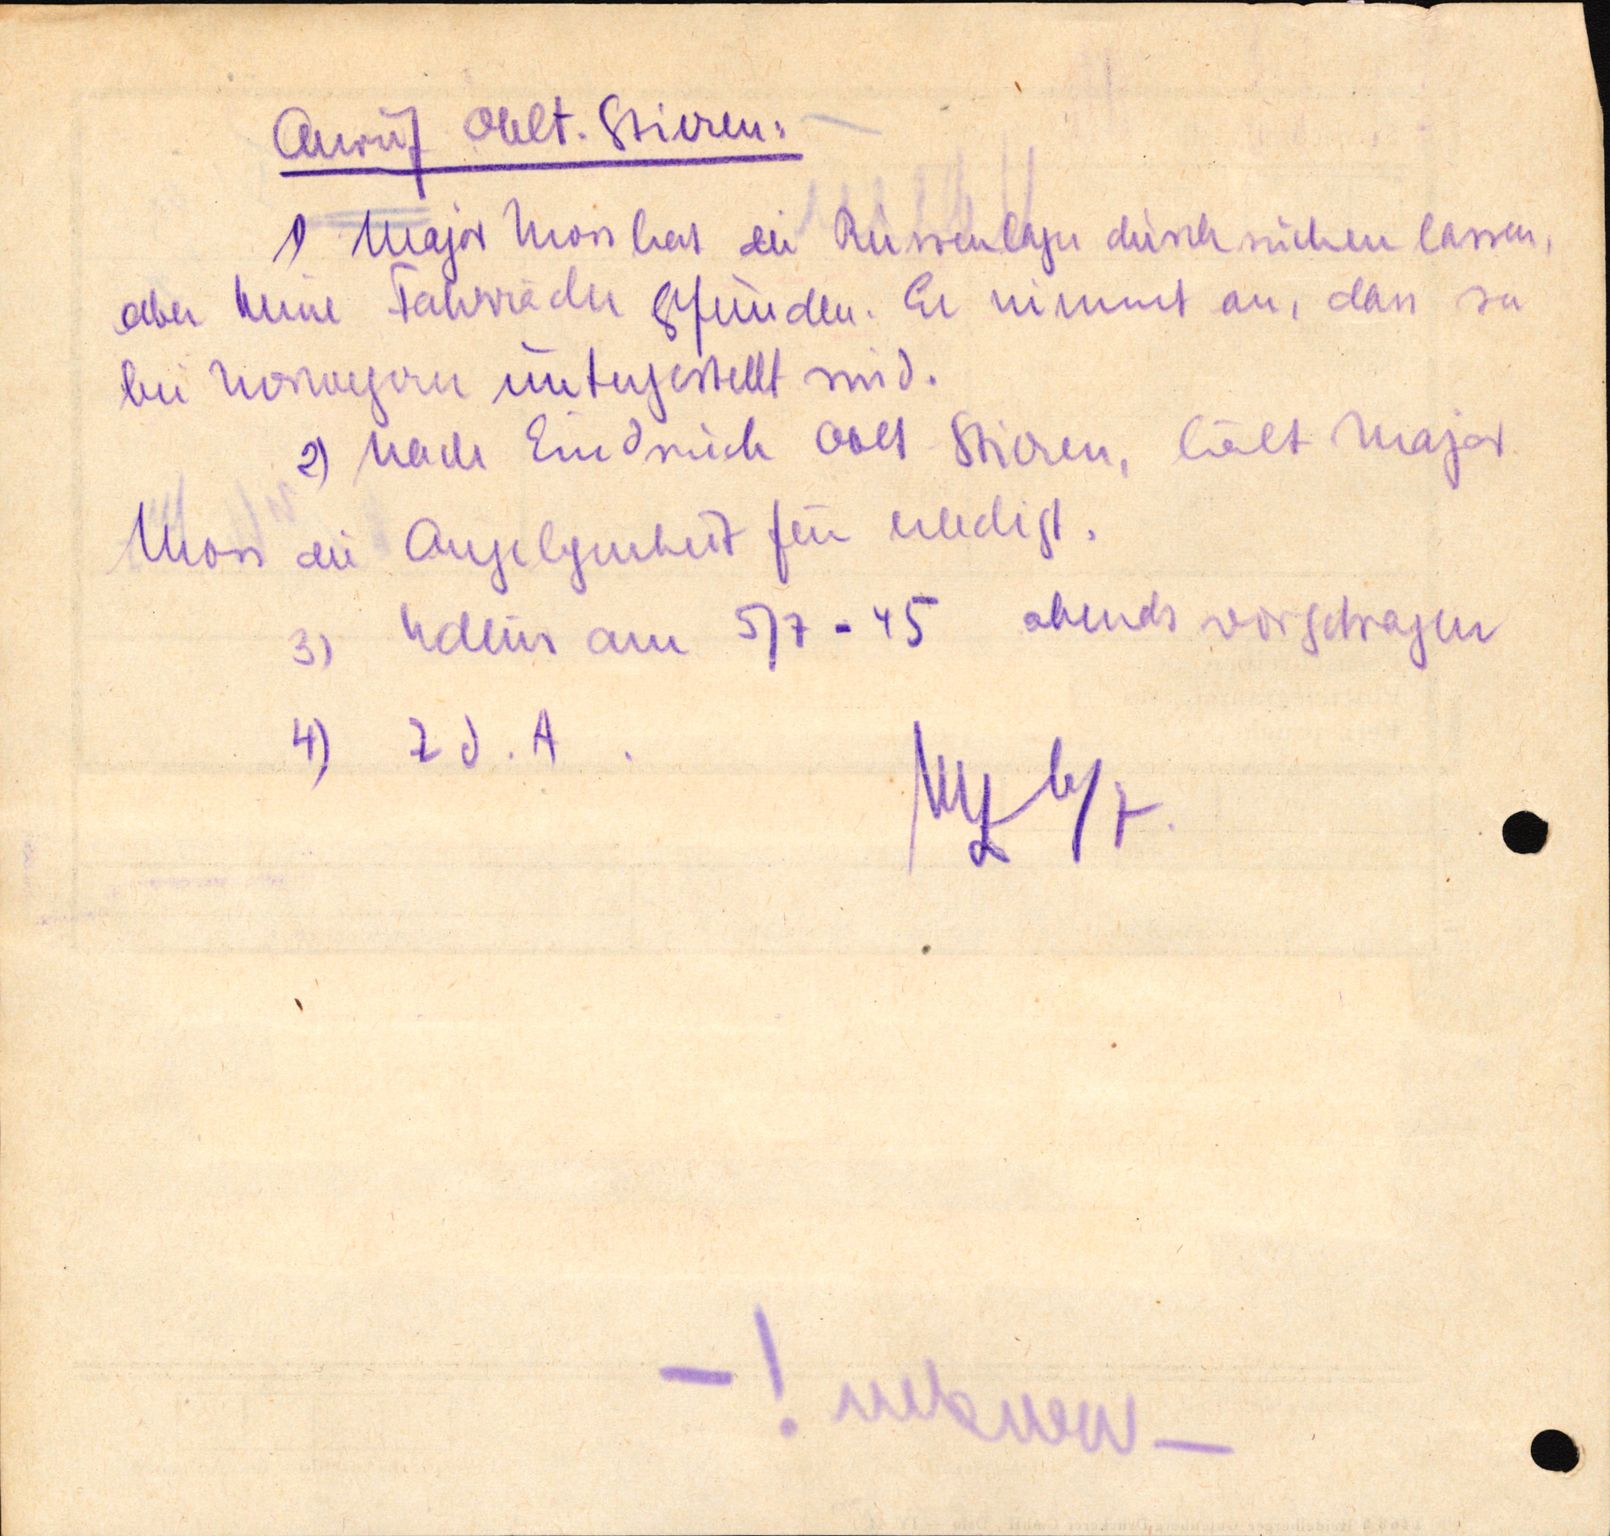 Anruf Oblt. Stieren:
1) Major Moss hat die Russenlager durchsuchen lassen,
aber keine Fahrräder gefunden. Er nimmt an, dass sie
bei Norwegern untergestellt sind.
2) Nach Eindruck Oblt Stieren, hält Major
Moss die Angelegenheit für erledigt.
3) am 5/7-45 abends vorgetragen
4) Z d. A.
6/7.
— Wenden! —